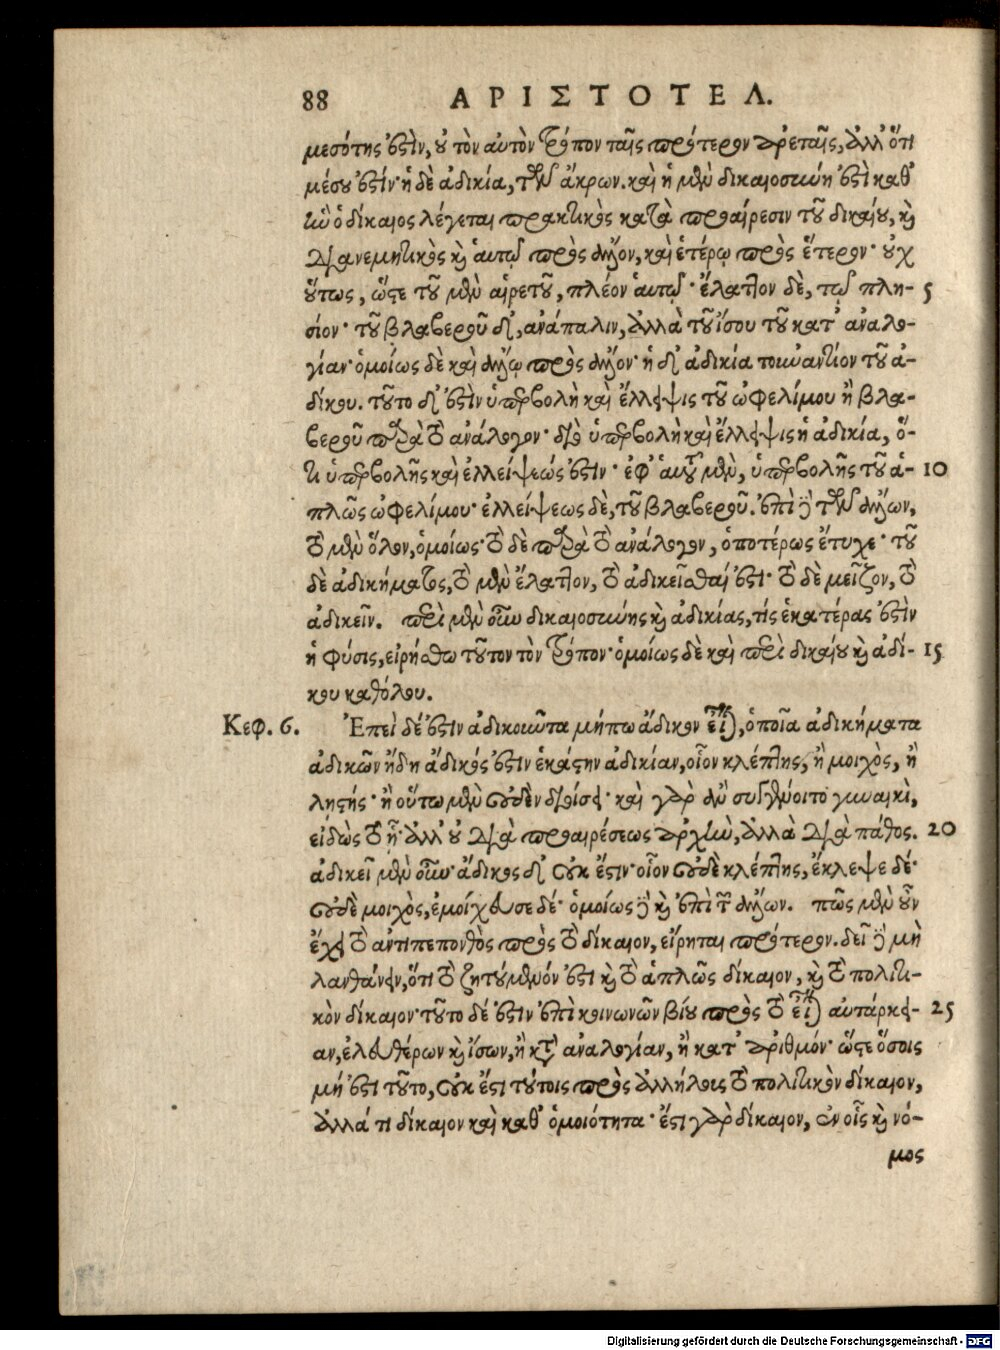 88 ΑΡΙΣΤΟΤΕΛ.
μεσότης ἐστὶν, οὐ τὸν αὐτὸν τρόπον ταῖς πρότερον ἀρεταῖς, ἀλλ' ὅτι
μέσου ἐστίν· ἡ δὲ ἀδικία, τῶν ἄκρων. καὶ ἡ μὲν δικαιοσύνη ἐστὶ καθ'
ἣν ὁ δίκαιος λέγεται πρακτικὸς κατὰ προαίρεσιν τοῦ δικαίου, καὶ
διανεμητικὸς καὶ αὑτῷ πρὸς ἄλλον, καὶ ἑτέρῳ πρὸς ἕτερον· οὐχ
οὕτως, ὥστε τοῦ μὲν αἱρετοῦ, πλέον αὑτῷ· ἔλαττον δὲ, τῷ πλη- 5
σίον· τοῦ βλαβεροῦ δ', ἀνάπαλιν, ἀλλὰ τοῦ ἴσου τοῦ κατ' ἀναλο-
γίαν· ὁμοίως δὲ καὶ ἄλλῳ πρὸς ἄλλον· ἡ δ' ἀδικία τοὐναντίον τοῦ ἀ-
δίκου. τοῦτο δ' ἐστὶν ὑπερβολὴ καὶ ἔλλειψις τοῦ ὠφελίμου ἢ βλα-
βεροῦ παρὰ τὸ ἀνάλογον· διὸ ὑπερβολὴ καὶ ἔλλειψις ἡ ἀδικία, ὅ-
τι ὑπερβολῆς καὶ ἐλλείψεώς ἐστιν· ἐφ' αὑτοῦ μὲν, ὑπερβολῆς τοῦ ἁ- 10
πλῶς ὠφελίμου· ἐλλείψεως δὲ, τοῦ βλαβεροῦ. ἐπὶ δὲ τῶν ἄλλων,
τὸ μὲν ὅλον, ὁμοίως· τὸ δὲ παρὰ τὸ ἀνάλογον, ὁποτέρως ἔτυχε· τοῦ
δὲ ἀδικήματος, τὸ μὲν ἔλαττον, τὸ ἀδικεῖσθαί ἐστι· τὸ δὲ μεῖζον, τὸ
ἀδικεῖν. περὶ μὲν οὖν δικαιοσύνης καὶ ἀδικίας, τίς ἑκατέρας ἐστὶν
ἡ φύσις, εἰρήσθω τοῦτον τὸν τρόπον· ὁμοίως δὲ καὶ περὶ δικαίου καὶ ἀδί- 15
κου καθόλου.
Κεφ. 6. Ἐπεὶ δέ ἐστιν ἀδικοῦντα μήπω ἄδικον εἶναι, ὁποῖα ἀδικήματα
ἀδικῶν ἤδη ἄδικός ἐστιν ἑκάστην ἀδικίαν, οἷον κλέπτης, ἢ μοιχὸς, ἢ
λῃστής· ἢ οὕτω μὲν οὐδὲν διοίσει· καὶ γὰρ ἂν συγγένοιτο γυναικὶ,
εἰδὼς τὸ ᾗ· ἀλλ' οὐ διὰ προαιρέσεως ἀρχὴν, ἀλλὰ διὰ πάθος. 20
ἀδικεῖ μὲν οὖν· ἄδικος δ' οὐκ ἔστιν· οἷον οὐδὲ κλέπτης, ἔκλεψε δέ·
οὐδὲ μοιχὸς, ἐμοίχευσε δέ· ὁμοίως δὲ καὶ ἐπὶ τῶν ἄλλων. πῶς μὲν οὖν
ἔχει τὸ ἀντιπεπονθὸς πρὸς τὸ δίκαιον, εἴρηται πρότερον. δεῖ δὲ μὴ
λανθάνειν, ὅτι τὸ ζητούμενόν ἐστι καὶ τὸ ἁπλῶς δίκαιον, καὶ τὸ πολιτι-
κὸν δίκαιον· τοῦτο δέ ἐστιν ἐπὶ κοινωνῶν βίου πρὸς τὸ εἶναι αὐτάρκει- 25
αν, ἐλευθέρων καὶ ἴσων, ἢ κατ' ἀναλογίαν, ἢ κατ' ἀριθμόν· ὥστε ὅσοις
μή ἐστι τοῦτο, οὐκ ἔστι τούτοις πρὸς ἀλλήλους τὸ πολιτικὸν δίκαιον,
ἀλλά τι δίκαιον καὶ καθ' ὁμοιότητα· ἔστι γὰρ δίκαιον, ἐν οἷς καὶ νό-
μος
Digitalisierung gefördert durch die Deutsche Forschungsgemeinschaft - DFG